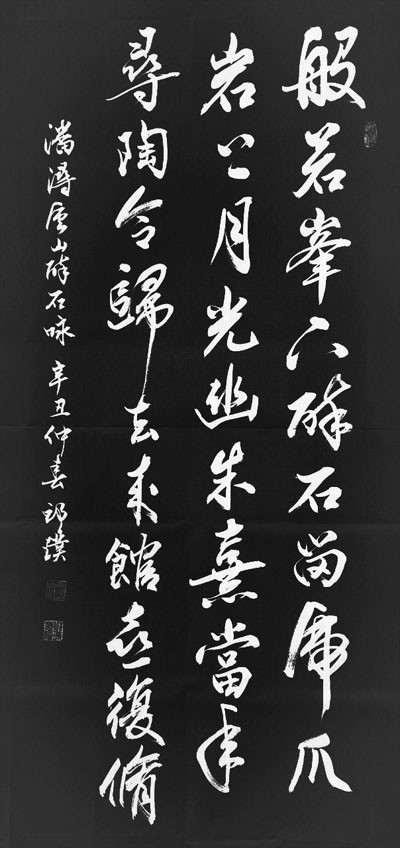 般若峯下醉石留虎爪
岩上月光幽朱熹當年
尋陶令歸去來館亦復脩
潘潯廬山醉石咏 辛丑仲春 邵璞